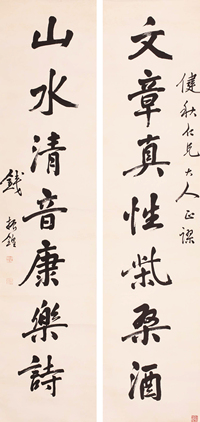 健秋仁兄大人正謬
文章真性柴桑酒
山水清音康樂詩
錢振鍠